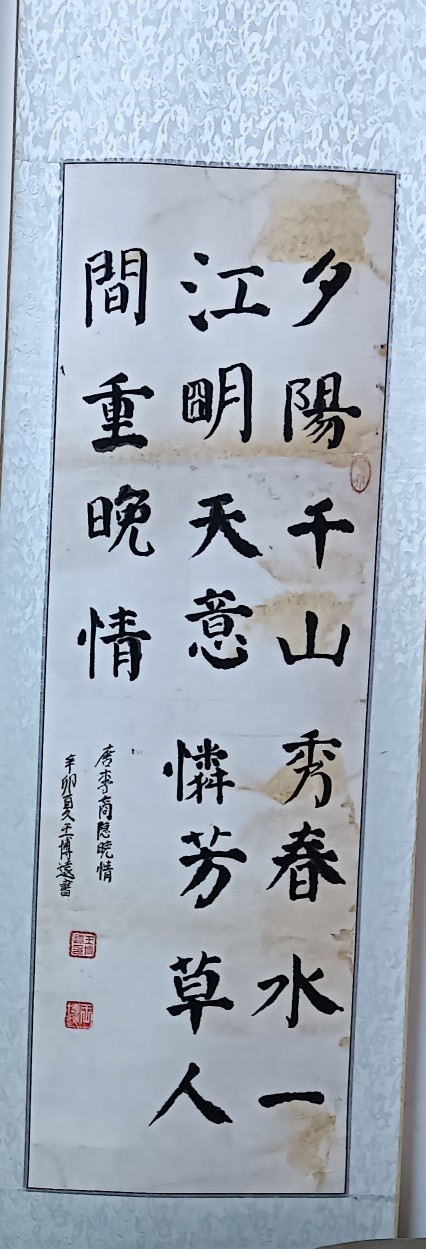 夕陽千山秀春水一
江明天意憐芳草人
間重晚情
唐李商隐晚情
辛卯夏王博遠書